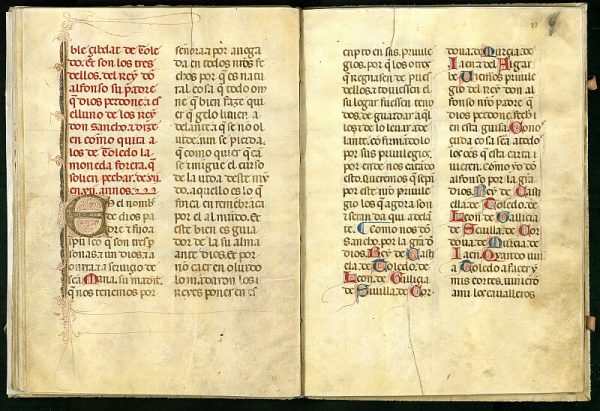 ble cibdat de Tole
do. et son los tres
dellos. del Rey dõ
alfonso su padre
q̃ dios perdone. a es
el uno de los Rey
don sancho. a dize
en commo quita a
los de Toledo la
moneda forera. q̃
solien pechar. de vij
en vij. annos.
EN el nomb̃
re de dios pa
dre τ fijo. a
spũ scõ. que son tres p̃
sonas. a un dios. a
onrra. a seruiçio de
scã Maria. su madre.
q̃ nos tenemos por
señora. a por auoga
da en todos nros fe
chos. por q̃ es natu
ral cosa q̃ todo om
ne q̃ bien faze quie
re q̃ gelo lieuen a
delante. a q̃ se nõ ol
uide. nin se pierda.
q̃ commo quier q̃ cã
se τ mingue el curso
de la uida deste mũ
do. aquello es lo q̃
finca en remẽbrãça
por el al mundo. Et
este bien es guia
dor de la su alma
ante dios. Et por
nõ caer en oluido
lo mandaron los
Reyes poner en es
cripto en sus priuile
gios. por q̃ los otros
q̃ regnassen depues
dellos. a touiessen el
su logar fuessen teni
dos de guardar aq̃l
lo. τ de lo leuar ade
lante. cõfirmãdo lo
por sus priuilegios.
Por ende nos catãdo
esto. queremos q̃ sepã
por este nr̃o priuile
gio los q̃ agora son
τ seran daq̃ adelã
te. Como nos dõ
sancho. por la grã dʼ
dios. Rey de Casti
ella. de Toledo. de
Leon. de Gallicia
de Seuilla. de Cor
doua. de Murcia. de
Iaen. a del Algar
ue Viemos priuile
gio del Rey don al
fonso nr̃o padre q̃
dios perdone. fecho
en esta guisa. Cono
çuda cosa sea a todos
los oḿes q̃ esta carta τ
uieren. cõmo yo dõ
alfonso por la grã dʼ
dios. Rey de Casti
ella. de Toledo. de
Leon. de Gallicia
de Seuilla. de Cor
doua. de Murcia. de
Iaen. Quando uin
a Toledo a fazer y
mis cortes. uinierõ
ami los caualleros